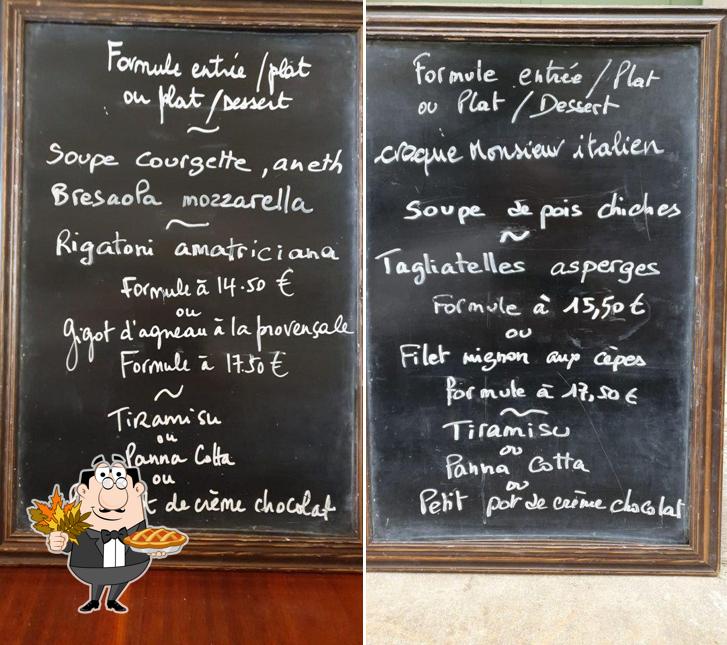 Formule entrée / plat
ou plat / Dessert
~
Soupe courgette, aneth
Bresaola mozzarella
~
Rigatoni amatriciana
Formule à 14.50 €
ou
gigot d'agneau à la provençale
Formule à 17.50 €
~
TiRamisu
ou
Panna Cotta
ou
t de crème chocolat
Formule entrée / Plat
ou Plat / Dessert
croque Monsieur italien
Soupe de pois chiches
~
Tagliatelles asperges
Formule à 15,50 €
ou
Filet mignon aux cèpes
formule à 17,50 €
~
Tiramisu
ou
Panna Cotta
ou
Petit pot de crème chocolat